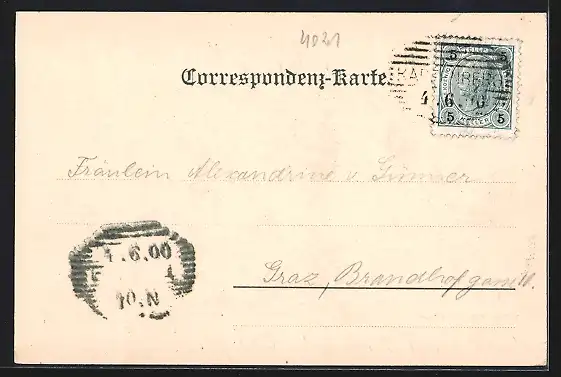 4021
Correspondenz-Karte.
5
HELLER
5 5
4.6.
Fräulein Alexandrine v.
Graz, Brandhofgasse
4.6.00
10.N